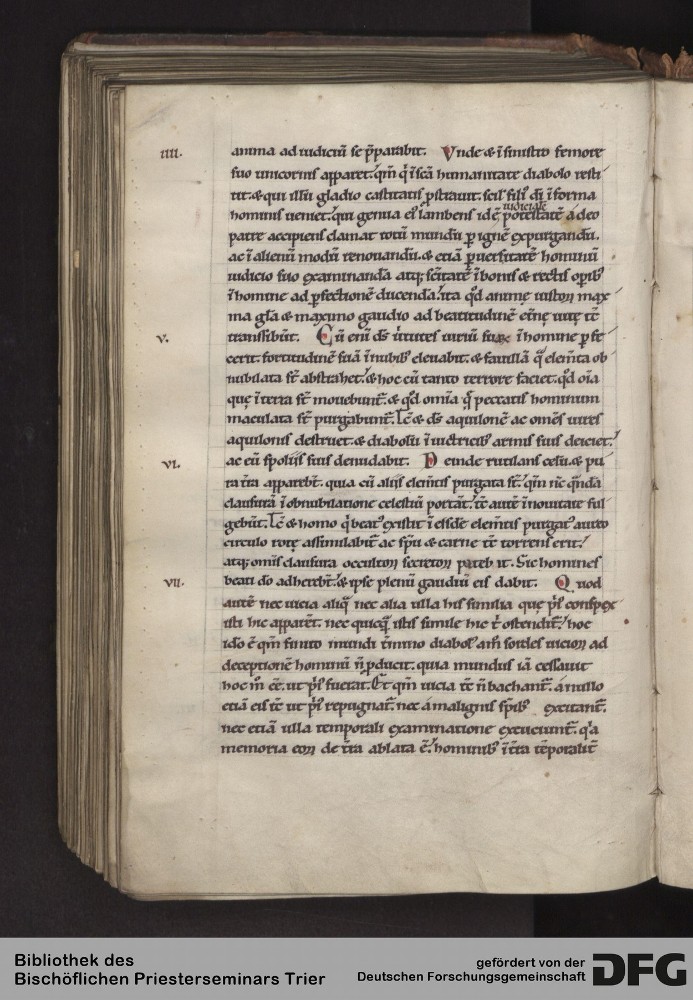 IIII.
anima ad iudiciū se p̄parabit. Vnde & ī sinistro femore
suo unicornis apparet. qm̄ q̇ ī sc̄a humanitate diabolo resti
tit. & qui illū gladio castitatis ꝓstrauit. scil' fili' dī ī forma
hominis ueniet. qui genua ei' lambens idē
iudiciale
potestatē a deo
patre accipiens clamat totū mundū ꝑ ignē expurgandū.
ac ī alienū modū renouandū. & etiā ꝑuersitatē hominū
iudicio suo examinandā atq; sc̄itatē ī bonis & rectis oꝑib'
ī homine ad ꝑfectionē ducendā. ita qd̄ animę iustoꝝ max
ma gl̄a & maximo gaudio ad beatitudinē et̄nę uitę tc̄
transibūt.
V.
Cū eni ds̄ ū́tutes uiriū suaꝝ ī homine ꝑfe
cerit. fortitudinē suā ī nubib' eleuabit. & fauillā q̄ elem̄ta ob
nubilata st̄ abstrahet. & hoc cū tanto terrore faciet. qd̄ oīa
quę ī terra st̄ mouebunt̄. & qd̄ omīa q̨ peccatis hominum
maculata st̄ purgabunt̄. Tc̄ & ds̄ aquilonē ac omēs uires
aquilonis destruet. & diabolū ī uictricib' armis suis deiciet.
ac eū spoliis suis denudabit.
VI.
Deinde rutilans celū. & pu
ra tr̄a apparebt̄. quia cū aliis elem̄tis purgata st̄. qm̄ nc̄ q̄ndā
clausurā ī obnubilatione celestiū portāt. tc̄ autē ī nouitate ful
gebūt. Tc̄ & homo q̇ beat' existit ī eisdē elem̄tis purgat' aureo
circulo rotę assimilabit̄ ac sp̄u & carne tc̄ torrens erit.
atq; omīs clausura occultoꝝ secretoꝝ patebit. Sic homines
beati dō adherebt̄. & ipse plenū gaudiū eis dabit.
VII.
Quod
autē nec uicia aliq̄ nec alia ulla his similia quę p'i' conspex
isti hic apparēt. nec quicq̄ istis simile hic t' ostendit̄. hoc
idō ē qm̄ finito mundi t'mino diabol' am̄ sordes uicioꝝ ad
deceptionē hominū n̄ ꝓducit. quia mundus iā cessauit
hoc m̄ ee. ut p'i' fuerat. Et qm̄ uicia tc̄ n̄ bachant̄. a nullo
etiā eis tc̄ ut p'i' repugnat̄. nec a malignis sp̄ib' excitant̄.
nec etiā ulla temporali examinatione exercunt̄. q'a
memoria eoꝝ de tr̄a ablata ē. hominib' ī tr̄a tēporalit̄
Bibliothek des
Bischöflichen Priesterseminars Trier
gefördert von der
Deutschen Forschungsgemeinschaft
DFG